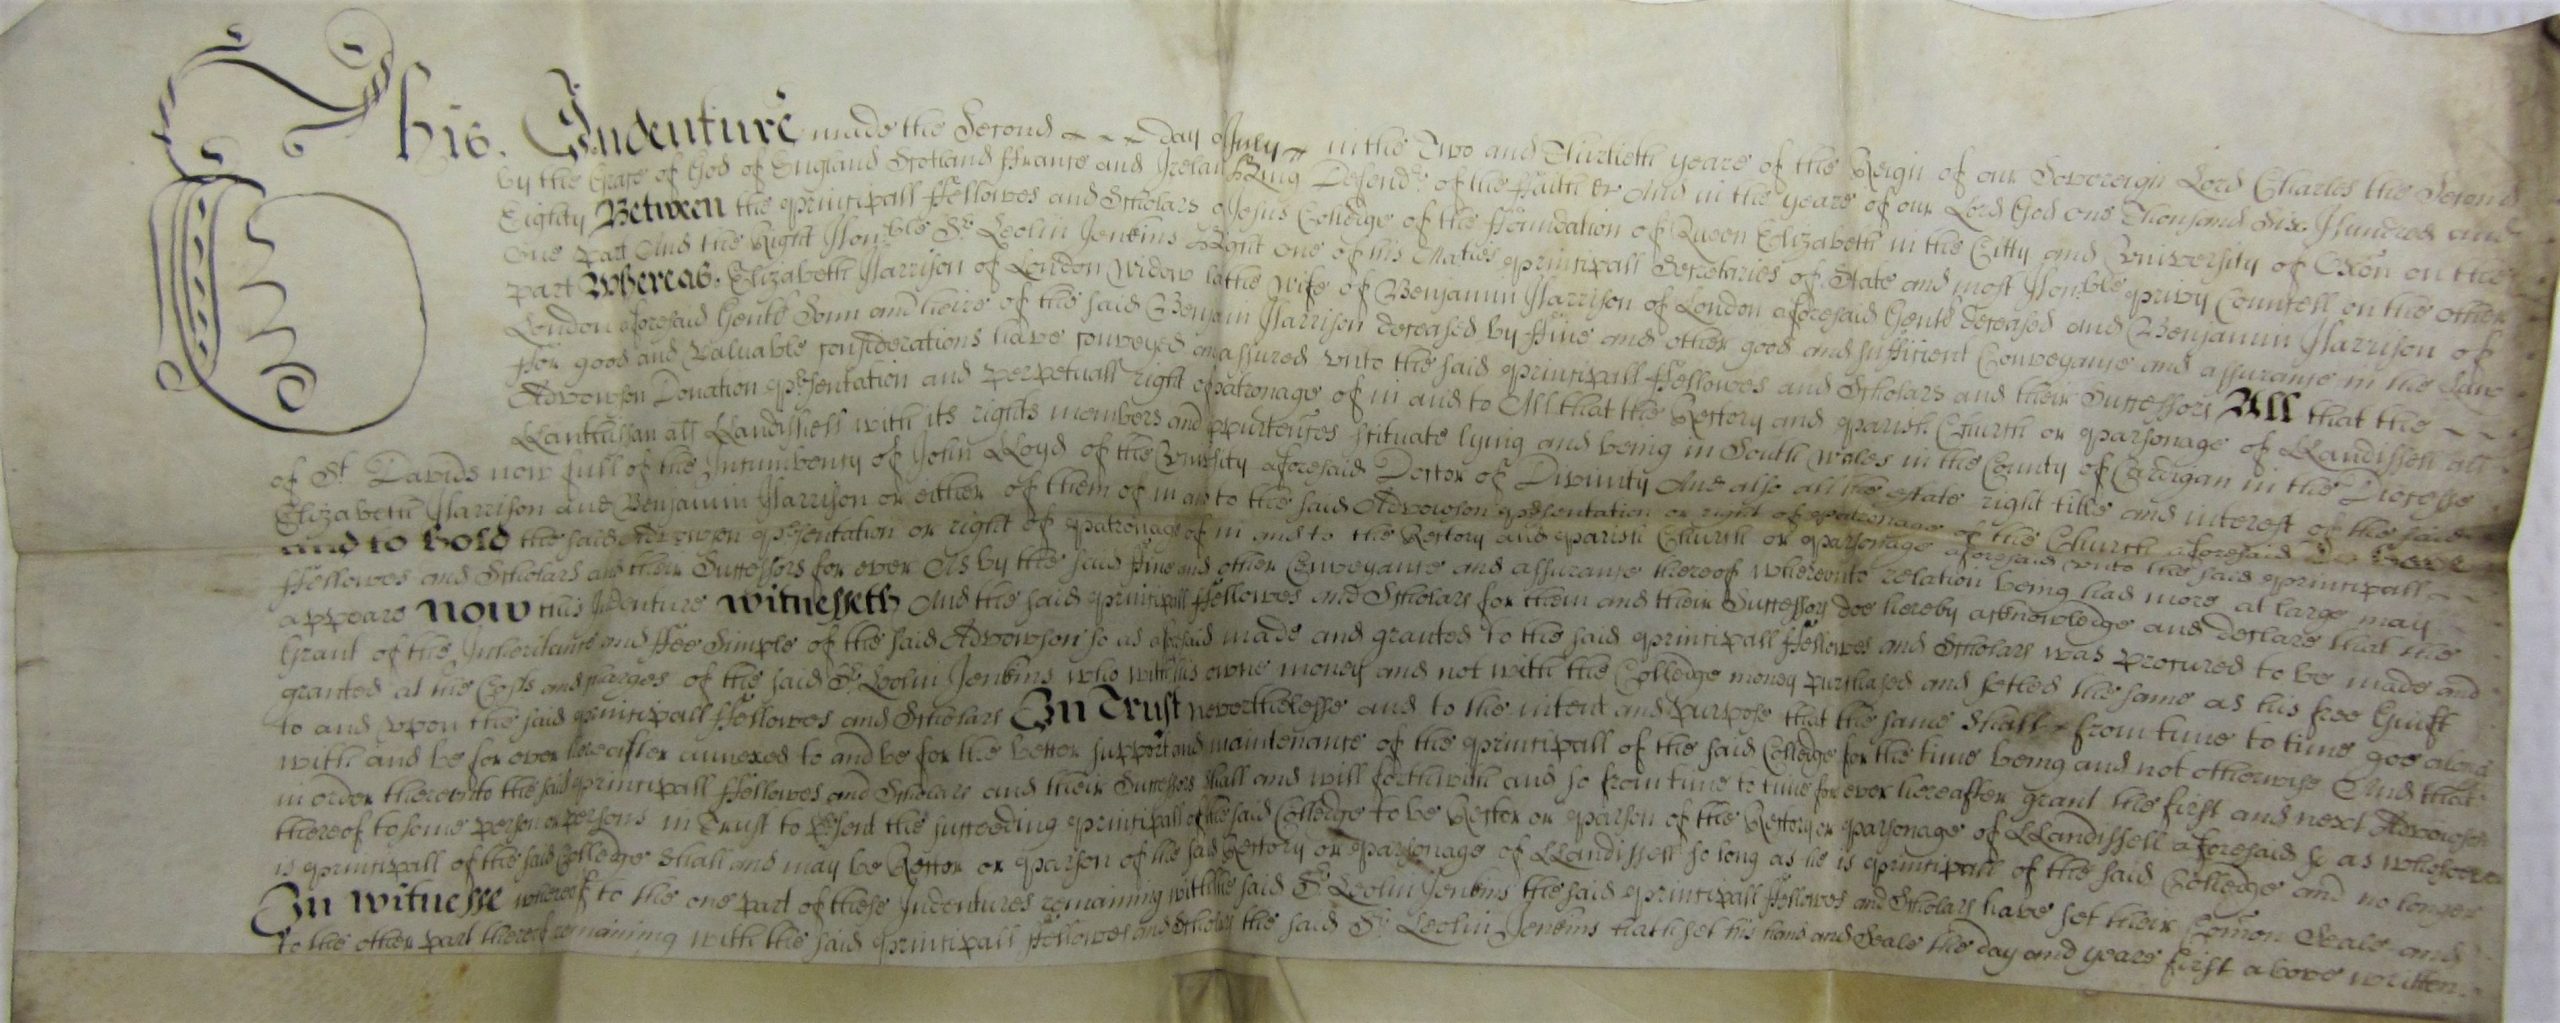 This Indenture made the Second day of July in the Two and Thirtieth yeare of the Reign of our Sovereign Lord Charles the Second
by the Grace of God of England Scotland ffrance and Ireland King Defendr of the ffaith &c And in the yeare of our Lord God one Thousand Six Hundred and
Eighty Between the Principall ffellowes and Schollars of Jesus Colledge of the ffoundation of Queen Elizabeth in the Citty and University of Oxōn on the
one part And the Right Honble Sr Leolin Jenkins Knight one of his Maties Principall Secretaries of State and most Honble Privy Councell on the other
part Whereas Elizabeth Harrison of London Widow late the Wife of Benjamin Harrison of London aforesaid Gent deceased and Benjamin Harrison of
London aforesaid Gent Sonn and heire of the said Benjamin Harrison deceased by ffine and other good and sufficient Conveyance and assurance in the Law
ffor good and valuable considerations have conveyed and assured unto the said Principall ffellowes and Schollars and their Successors All that the
Advowson Donation psentation and perpetuall right of patronage of in and to All that the Rectory and Parish Church or Parsonage of LLandissell als
LLandissell with its rights members and appurtences scituate lying and being in South Wales in the County of Cardigan in the Diocesse
of St Davids now full of the Incumbency of John LLoyd of the University aforesaid Doctor of Divinity And also all the estate right title and interest of the said
Elizabeth Harrison and Benjamin Harrison or either of them of in and to the said Advowson presentation or right of Patronage of the Church aforesaid To have
and to hold the said Advowson psentation or right of Patronage of in and to the Rectory and Parish Church or Parsonage aforesaid unto the said Principall
ffellowes and Schollars and their Successors for ever As by the said ffine and other Conveyance and assurance thereof whereunto relation being had more at large may
appeare Now this Indenture Witnesseth And the said Principall ffellowes and Schollars for them and their Successors doe hereby acknowledge and declare that the
Grant of the Inheritance and ffee Simple of the said Advowson so as aforesaid made and granted to the said Principall ffellowes and Schollars was procured to be made and
granted at the Costs and charges of the said Sr Leolin Jenkins who with his owne money and not with the Colledge money purchased and setled the same as his free Guift
to and upon the said Principall ffellowes and Schollars In Trust neverthelesse and to the intent and purpose that the same shall from time to time goe along
with and be for ever hereafter annexed to and be for the better support and maintenance of the Principall of the said Colledge for the time being and not otherwise And that
in order thereunto the said Principall ffellowes and Schollars and their Successors shall and will forthwith and so from time to time for ever hereafter grant the first and next Advowson
thereof to some person or persons in Trust to psent the succeeding Principall of the said Colledge to be Rector or Parson of the Rectory or Parsonage of LLandissell aforesaid so as whosoever
is Principall of the said Colledge shall and may be Rector or Parson of the said Rectory or Parsonage of LLandissell so long as he is Principall of the said Colledge and no longer
In Witnesse whereof to the one part of these Indentures remaining with the said Sr Leolin Jenkins the said Principall ffellowes and Schollars have set their Cōmon Seale and
to the other part thereof remaining with the said Principall ffellowes and Schollars the said Sr Leolin Jenkins hath set his hand and Seale the day and yeare first above written.